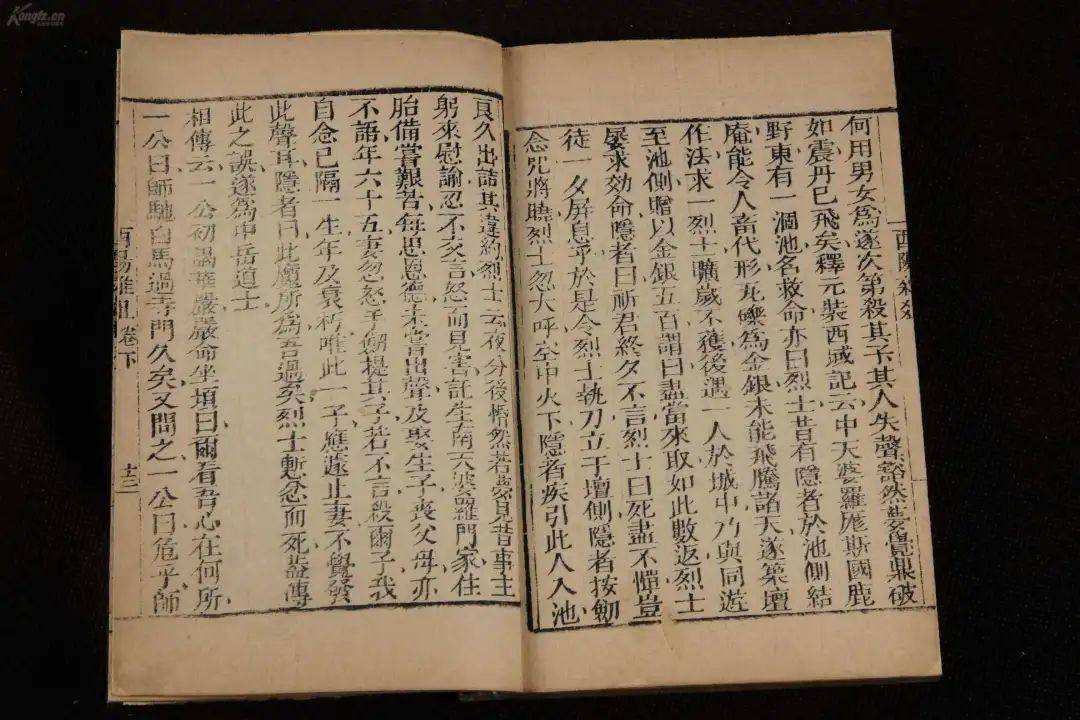 Kongfz.cn
何用男女爲遂次第殺其子其人失聲豁然夢覺鼎破
如震丹已飛矣釋元奘西域記云中天婆羅疪斯國鹿
野東有一涸池名救命亦曰烈士昔有隱者於池側結
庵能令人畜代形瓦礫爲金銀未能飛騰諸天遂築壇
作法求一烈士曠歲不獲後遇一人於城中乃與同遊
至池側贈以金銀五百謂曰盡當來取如此數返烈士
屡求効命隱者曰祈君終夕不言烈士曰死盡不憚豈
徒一夕屏息乎於是令烈士執刀立于壇側隱者按劒
念咒將曉烈士忽大呼空中火下隱者疾引此人入池
良久出詰其違約烈士云夜分後惛然若夢見昔事主
躬來慰諭忍不交言怒而見害託生南天婆羅門家住
胎備嘗艱苦每思恩德未嘗出聲及娶生子喪父母亦
不語年六十五妻忽怒手劒提其子若不言殺爾子我
自念已隔一生年及衰朽唯此一子應遽止妻不覺發
此聲耳隱者曰此魔所爲吾過矣烈士慙忿而死葢傳
此之誤遂爲中岳道士
相傳云一公初謁華嚴嚴命坐頃曰爾看吾心在何所
一公曰師馳白馬過寺門久矣又問之一公曰危乎師
酉陽雜俎 卷下 十三